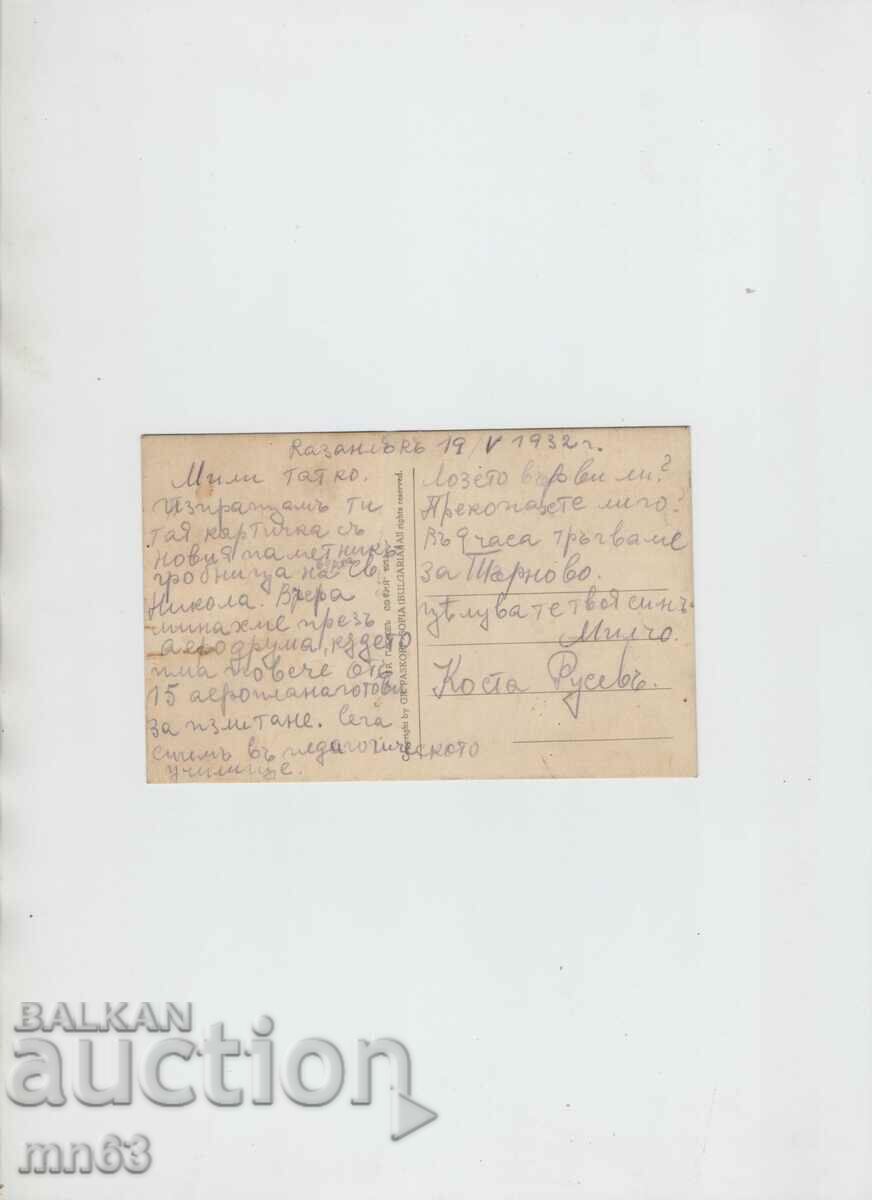 Казанлъкъ 19/V 1932 г.
Мили татко.
Изпращамъ ти
тая картичка съ
новия паметникъ
гробница на връх Св.
Никола. Вчера
минахме презъ
аеродрума, където
има повече отъ
15 аероплана готови
за излитане. Сега
сме въ педагогическото
училище.
Лозето върви ли?
Прекопахте ли го?
Въ 9 часа тръгваме
за Търново.
Цѣлува те твоя синъ
Милчо.
Коста Русевъ.
ГР. ПАСКОВЪ СОФИЯ 1931
Copyright by GR. PASKOFF SOFIA (BULGARIA) All rights reserved.
BALKAN
auction
mn63